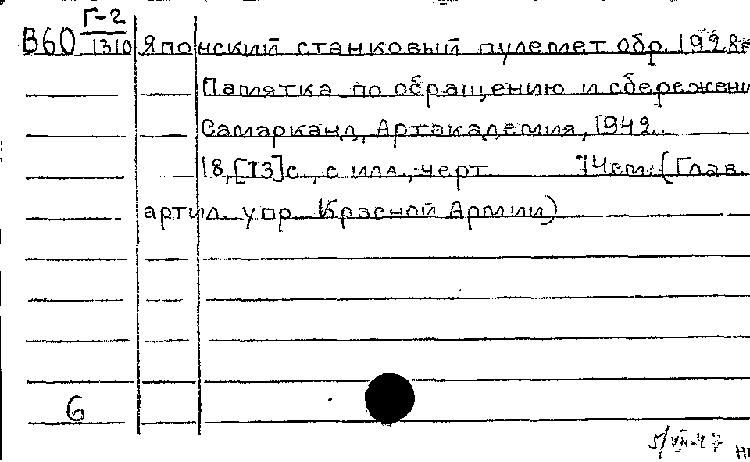 В60 Г-2
1310
Японский станковый пулемет обр. 1992 г
Памятка по обращению и сбережени
Самарканд, Артакадемия, 1942.
18, [13] с., с илл., черт. 14 см. (Глав.
артил. упр. Красной Армии)
6
5/VII-47